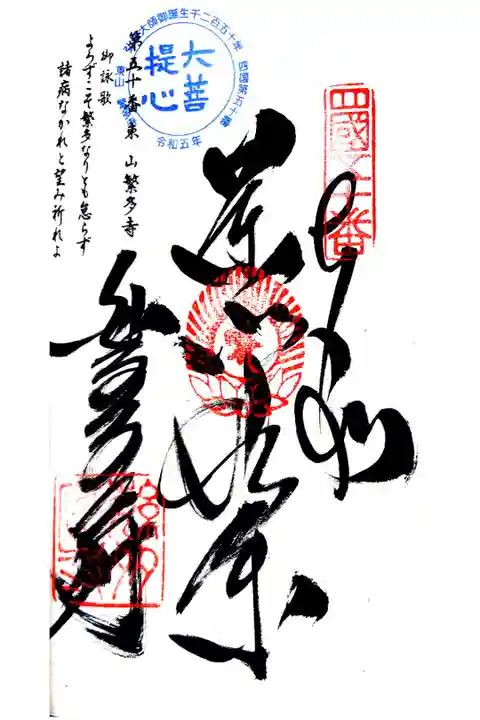 四國五十番
奉納
薬師如来
繁多寺
弘法大師御誕生千二百五十年
四国第五十番
大菩
提心
東山 繁多寺
令和五年
第五十番東山繁多寺
御詠歌
よろずこそ繁多なりとも怠らず
諸病なかれと望み祈れよ